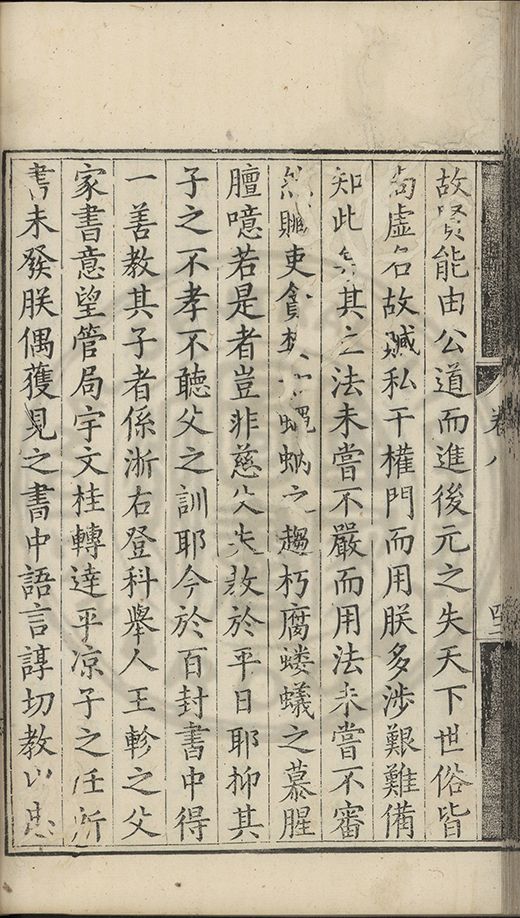 故賢能由公道而進後元之失天下世俗皆
尚虛名故贓私干權門而用朕多涉艱難備
知此其之法未嘗不嚴而用法未嘗不審
吏貪蠅蚋之趨朽腐螻蟻之慕腥
膻噫若是者豈非慈父失教於平日耶抑其
子之不孝不聽父之訓耶今於百封書中得
一善教其子者係浙右登科舉人王軫之父
家書意望管局宇文桂轉達平凉子之任所
書未發朕偶獲見之書中語言諄切教以忠
卷八